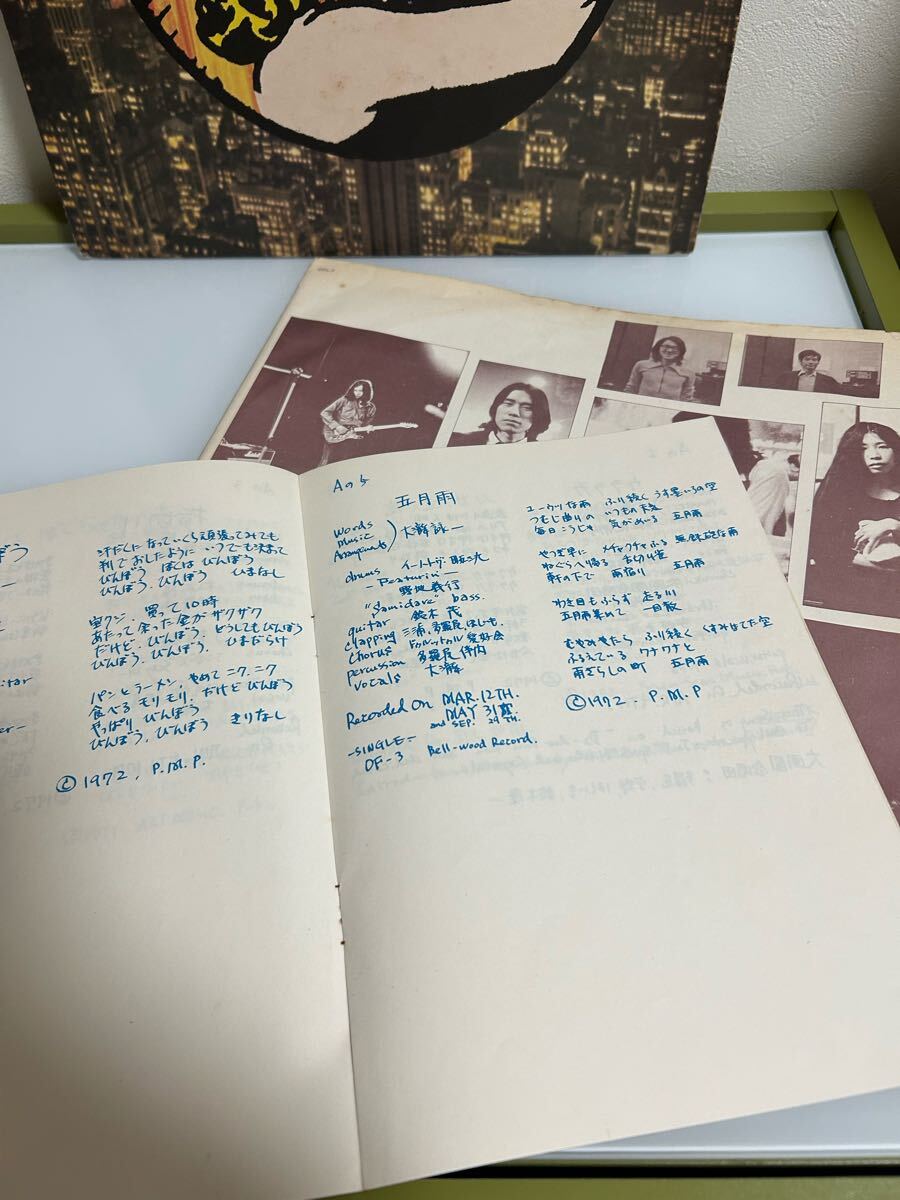 ぼう
汗だくになっていくら頑張ってみても
判でおしたように いつでも決まって
びんぼう ぼくは びんぼう
びんぼう、びんぼう ひまなし
宝クジ、買って10時
あたって余った金がザクザク
だけど、びんぼう、どうしてもびんぼう
びんぼう、びんぼう、ひまだらけ
パンとラーメン、やめて ニク、ニク
食べる モリモリ、だけど びんぼう
やっぱり、びんぼう
びんぼう、びんぼう きりなし
© 1972, P.M.P.
Aの5
五月雨
Words
Music
大瀧詠一
drums
-Featurin'-
野地義行
"Samidare" bass.
guitar 鈴木 茂
clapping 三浦、多羅尾、はしも。
chorus
percussion 多羅尾伴内
vocals 大瀧
Recorded On MAR.12TH.
MAY 31
and SEP. 29TH.
-SINGLE-
OF-3 Bell-wood Record.
ユーカリな雨 ふり続く うす暗い
つむじ曲りの いつもの天気
毎日こうじゃ 気がめいる 五月雨
やつぎ早に メチャクチャふる 無鉄砲な雨
ねぐらへ帰る
軒の下で 雨宿り 五月雨
わき目もふらず 走る川
五月雨集めて 一目散
むやみやたら ふり続く くすみはてた空
ふるえている ワナワナと
雨ざらしの町 五月雨
© 1972, P.M.P